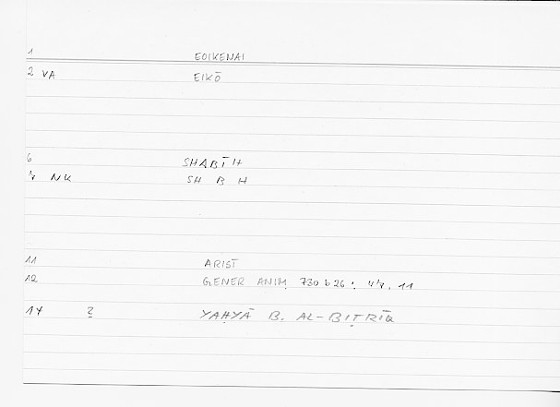 1 EOIKENAI
2 VA EIKŌ
6 SHABĪH
NK SH B H
11 ARIST
12 GENER ANIM 730 b 26 : 44. 11
17 ? YAḤYĀ B. AL-BIṬRĪQ